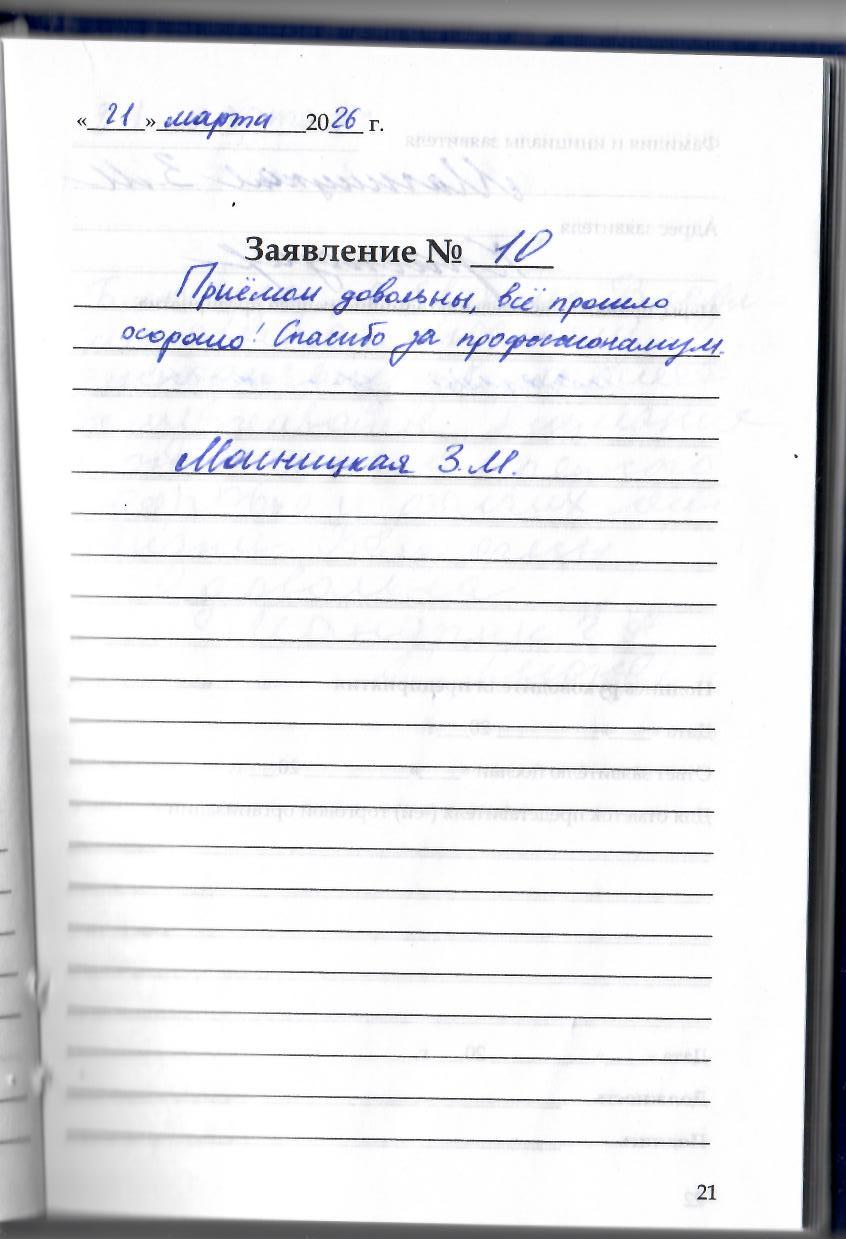 « 21 » марта 2026 г.
Заявление № 10
Приёмом довольны, всё прошло
хорошо! Спасибо за профессионализм.
З.М.
21